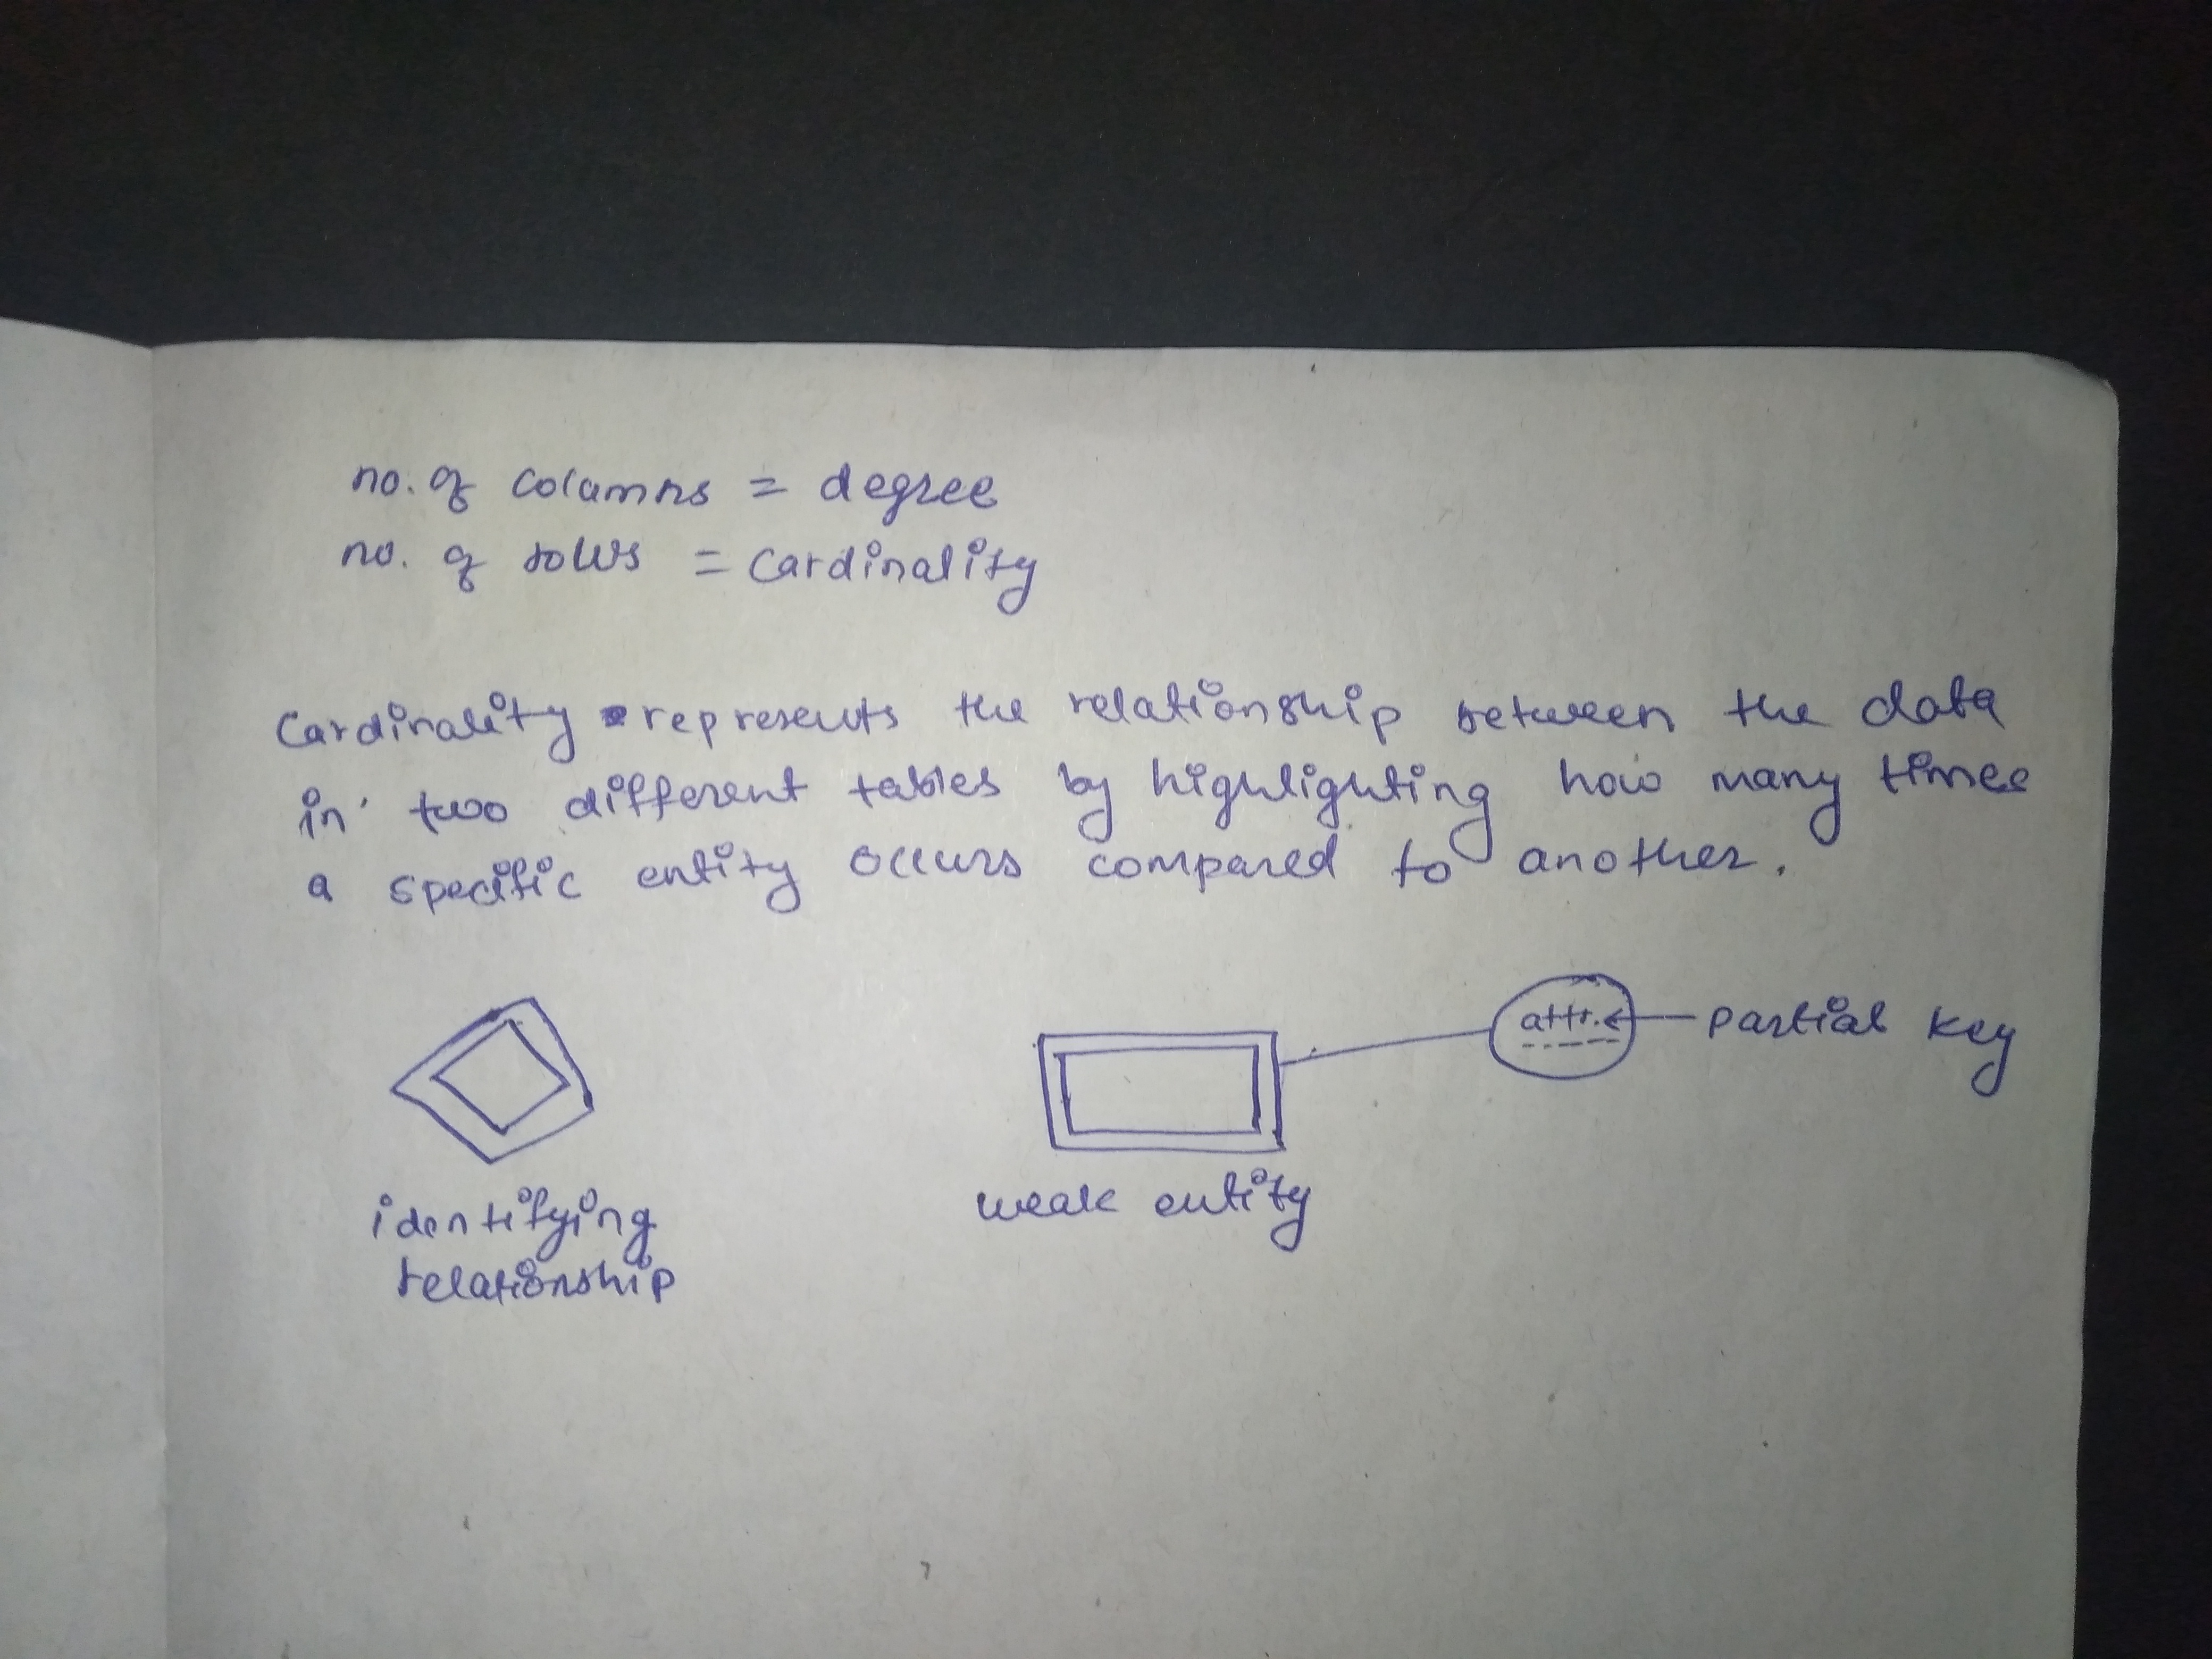 no. of columns = degree
no. of rows = cardinality
Cardinality represents the relationship between the data
in two different tables by highlighting how many times
a specific entity occurs compared to another.
attr. ← partial key
identifying
relationship
weak entity